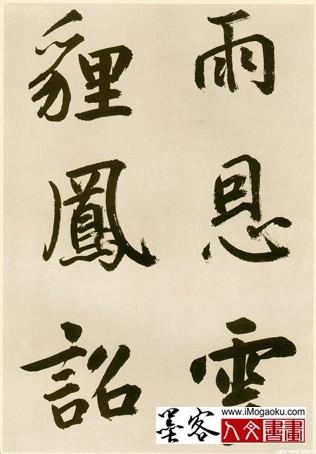 雨恩雲
貍鳳詔
墨客
www.iMogaoku.com
人文書畫